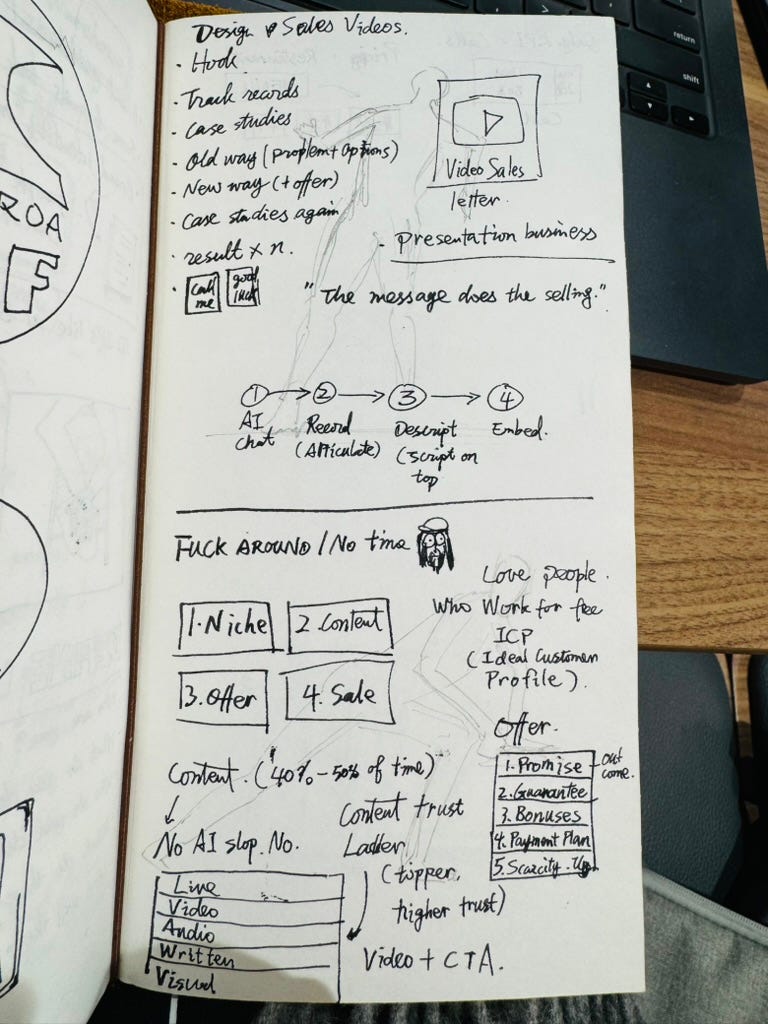 Design & Sales Videos.
· Hook
· Track records
· Case studies
· Old way (problem + options)
· New way (+ offer)
· Case studies again
· result × n.
· call me
good luck
Video Sales
letter.
- presentation business
"The message does the selling."
1 → 2 → 3 → 4
AI chat
Record (Articulate)
Descript (script on top
Embed.
FUCK AROUND / No time
1. Niche
2. Content
3. Offer
4. Sale
Love people.
Who Work for free
ICP
(Ideal Customer
Profile).
Offer.
1. Promise - out come.
2. Guarantee
3. Bonuses
4. Payment Plan
5. Scarcity.
Content. (40% - 50% of time)
No AI slop. No.
Live
Video
Audio
Written
Visual
Content trust
Ladder
(topper,
higher trust)
Video + CTA.
ROA
F
return
shift